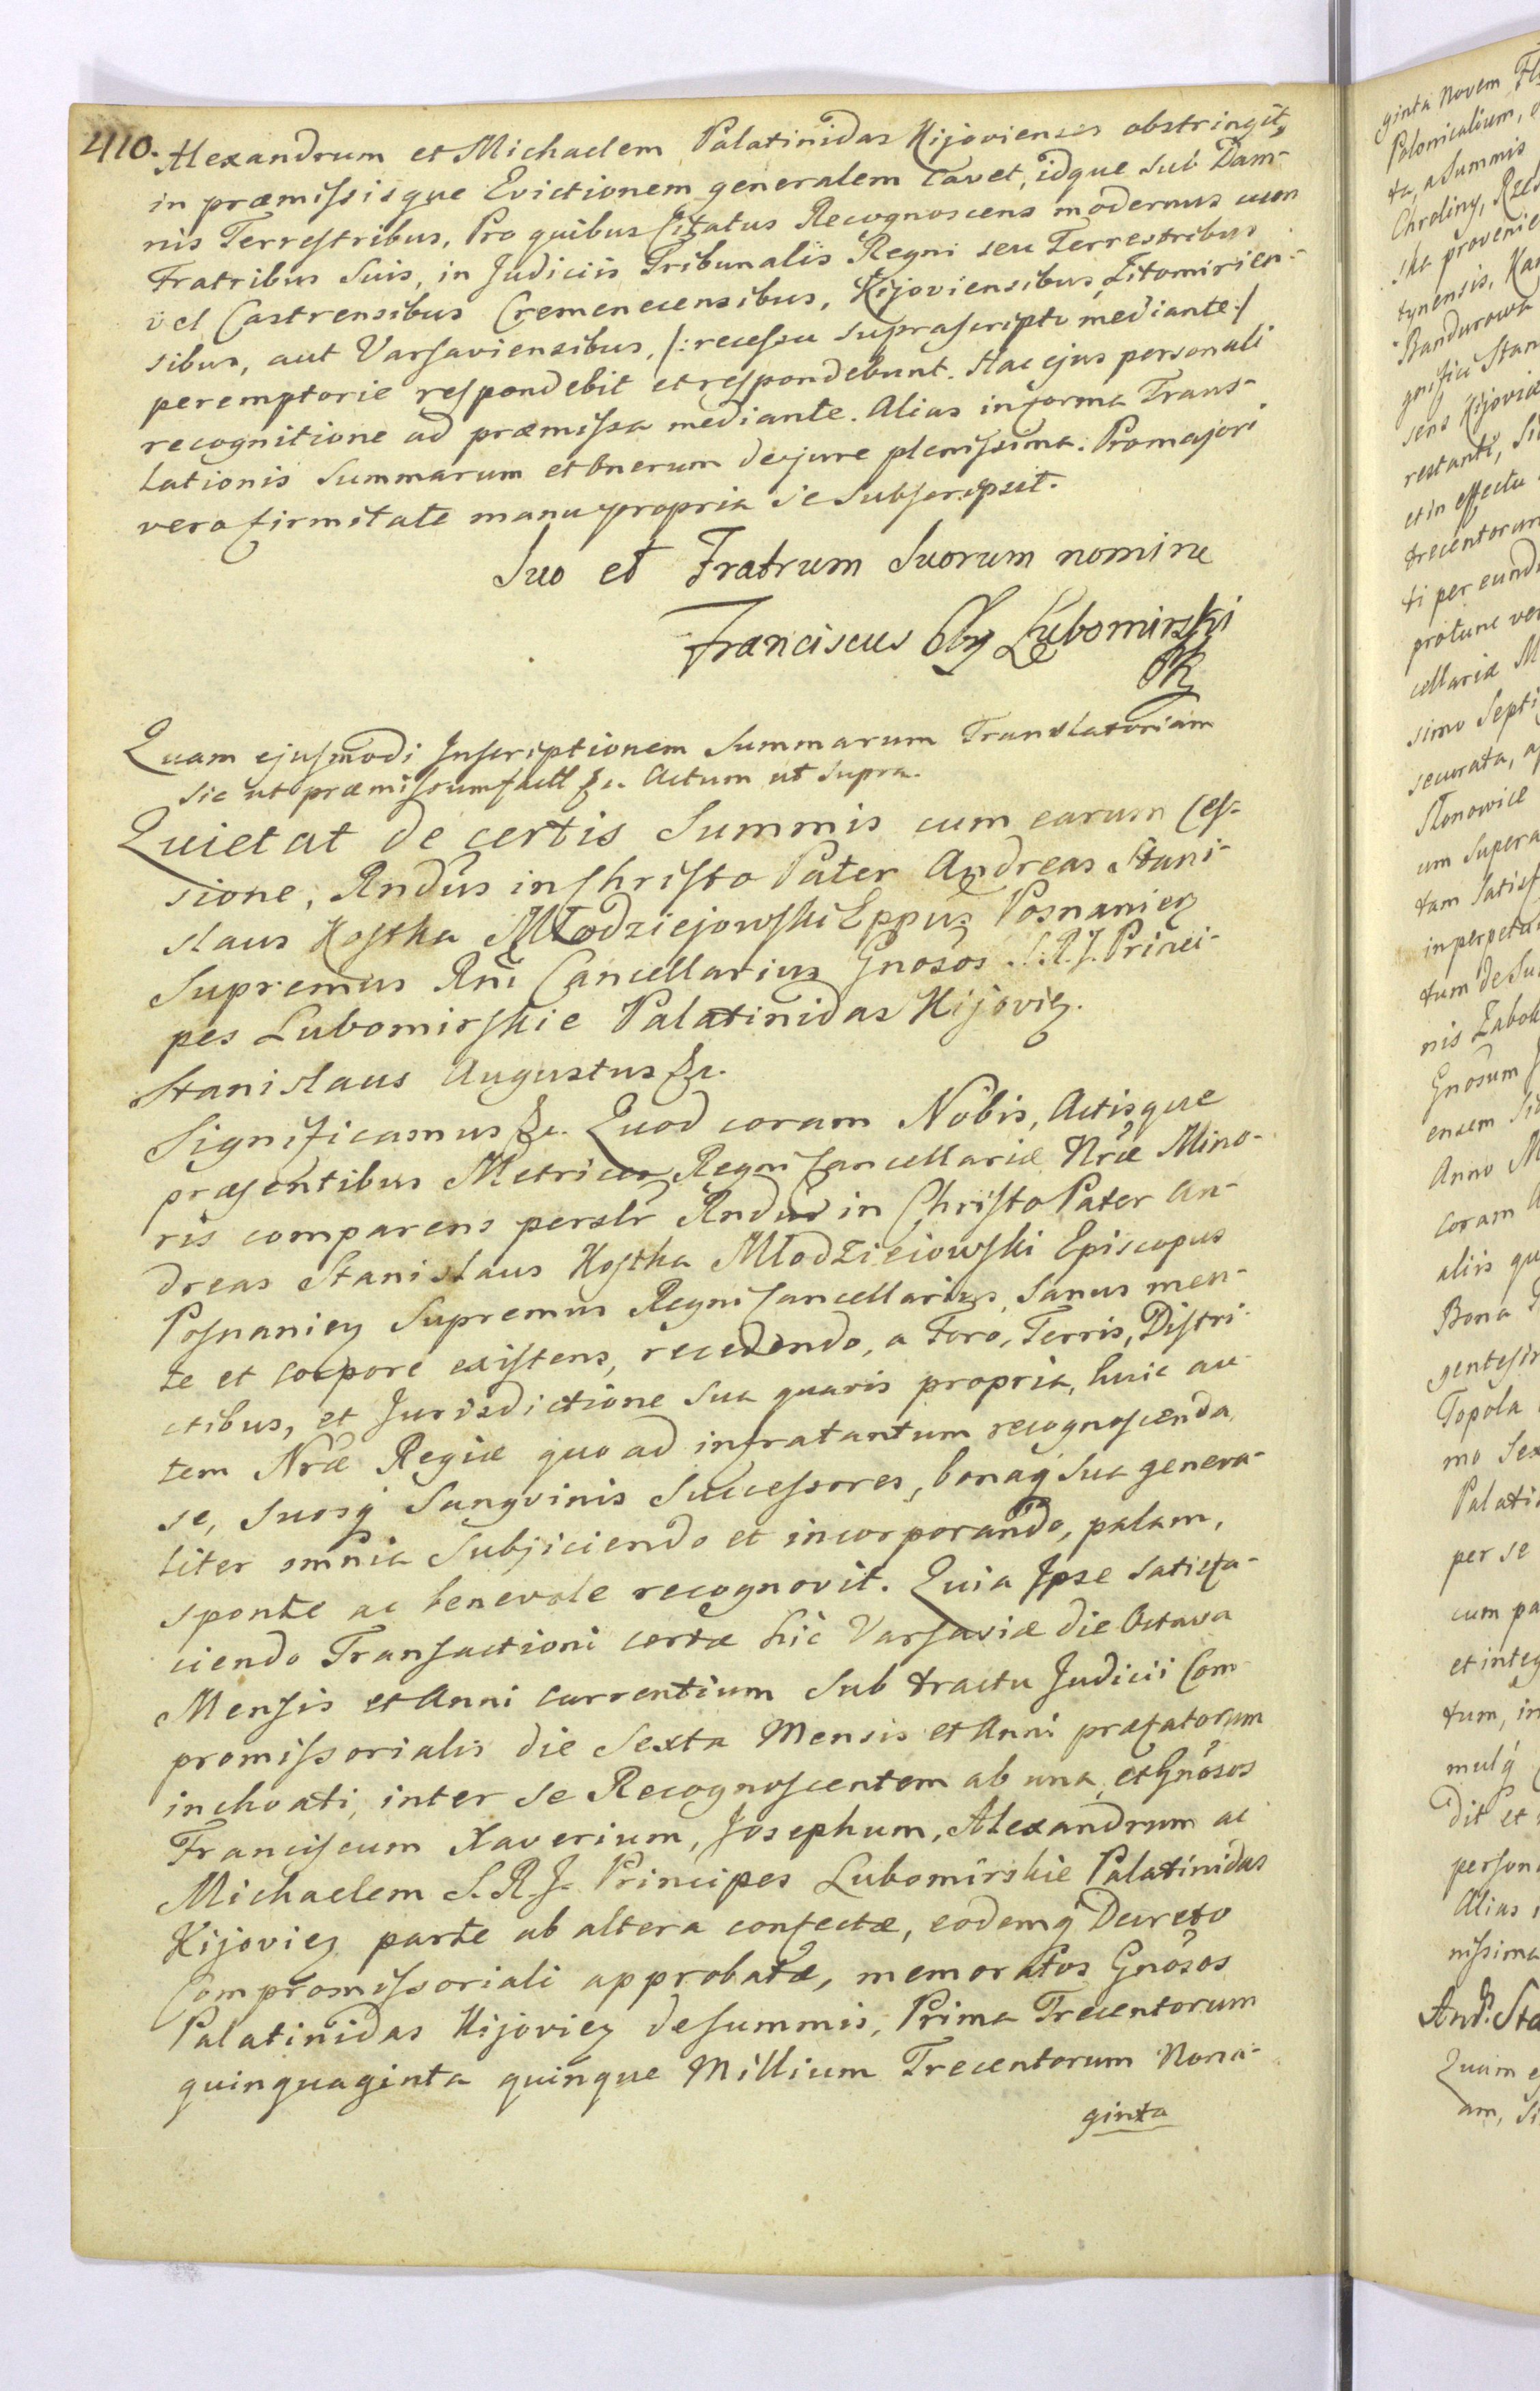 410. Alexandrum et Michaelem Palatinidas Kijovienses obstringit,
in præmissisque Evictionem generalem cavet, idque sub Dam-
nis Terrestribus, Pro quibus Citatus Recognoscens modernus cum
Fratribus Suis, in Judiciis Tribunalis Regni seu Terrestribus
vel Castrensibus Cremenecensibus, Kijoviensibus Zitomirien-
sibus, aut Varsaviensibus, /: recessu suprascripto mediante :/
peremptorie respondebit et respondebunt. Hac ejus personali
recognitione ad præmissa mediante. Alias in forma Trans-
lationis Summarum et Onerum de jure plenissima. Pro majori
vero firmitate manu propria se subscripsit.
Suo et Fratrum Suorum nomine
Franciscus Lubomirski
Quam ejusmodi Inscriptionem Summarum Translatoriam
sic ut præmissum fact &c. Actum ut supra.
Quietat de certis Summis cum earum Ces-
sione, Rndus in Christo Pater Andreas Stani-
slaus Kostka Młodziejowski Eppus Posnaniens
Supremus Rni Cancellarius Gnosos S. R. J. Princi-
pes Lubomirskie Palatinidas Kijovien.
Stanislaus Augustus &c.
Significamus &c. Quod coram Nobis, Actisque
præsentibus Metrices Regni Cancellariæ Nræ Mino-
ris comparens personlr Rndus in Christo Pater An-
dreas Stanislaus Kostka Młodzieiowski Episcopus
Posnanien Supremus Regni Cancellarius, Sanus men-
te et corpore existens, recedendo, a Foro, Terris, Distri-
ctibus, et Jurisdictione sua quavis propria, huic au-
tem Nræ Regiæ quo ad infra tantum recognoscenda
se, suosq Sangvinis Successores, bonaq sua genera-
liter omnia Subjiciendo et incorporando, palam,
sponte ac benevole recognovit. Quia Ipse satisfa-
ciendo Transactioni certæ hic Varsaviæ die Octava
Mensis et Anni currentium sub tractu Judicii Com-
promissorialis die Sexta Mensis et Anni præfatorum
inchoati, inter se Recognoscentem ab una, et Gnosos
Franciscum Xaverium, Josephum, Alexandrum ac
Michaelem S. R. J. Principes Lubomirskie Palatinidas
Kijovien parte ab altera confectæ, eodemq Decreto
Compromissoriali approbatæ, memoratos Gnosos
Palatinidas Kijovien de Summis, Prima Trecentorum
quinquaginta quinque Millium Trecentorum Nona-
ginta
ginta Novem
Polonicalium,
ta, a Summis
Chroliny,
ska provenie
tynensis,
Bandurowa
gnifici Stan
sens Kijoviæ
restanti,
et in effectu
trecentorum
ti per eund
protunc
cellariæ M
simo Septi
securata,
Stonowice
um supera
tam satisf
in perpetu
tum de Su
nis Zabok
Gnosum
ensem
Anno M
coram A
aliis qu
Bona
gentesi
Topola
mo Sex
Palati
per se
cum pa
et integ
tum, in
mulq
dit et
person
Alias
nissima
And. Sta
Quam e
am, si